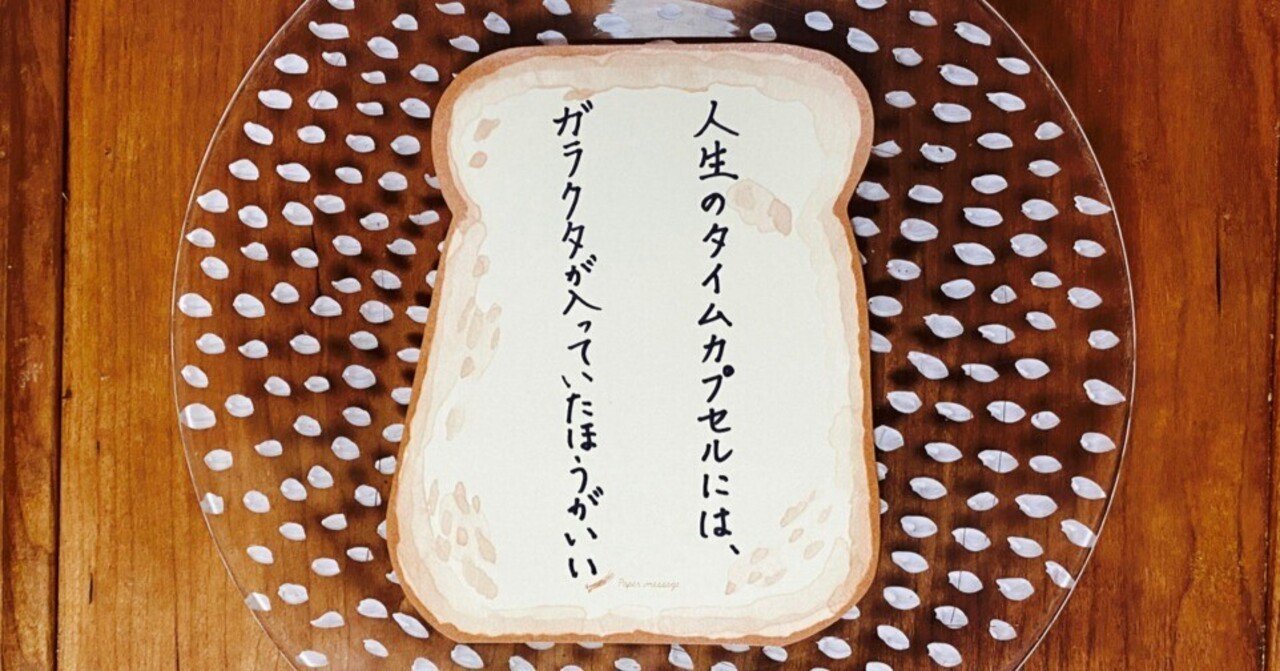 人生のタイムカプセルには、
ガラクタが入っていたほうがいい
Paper message